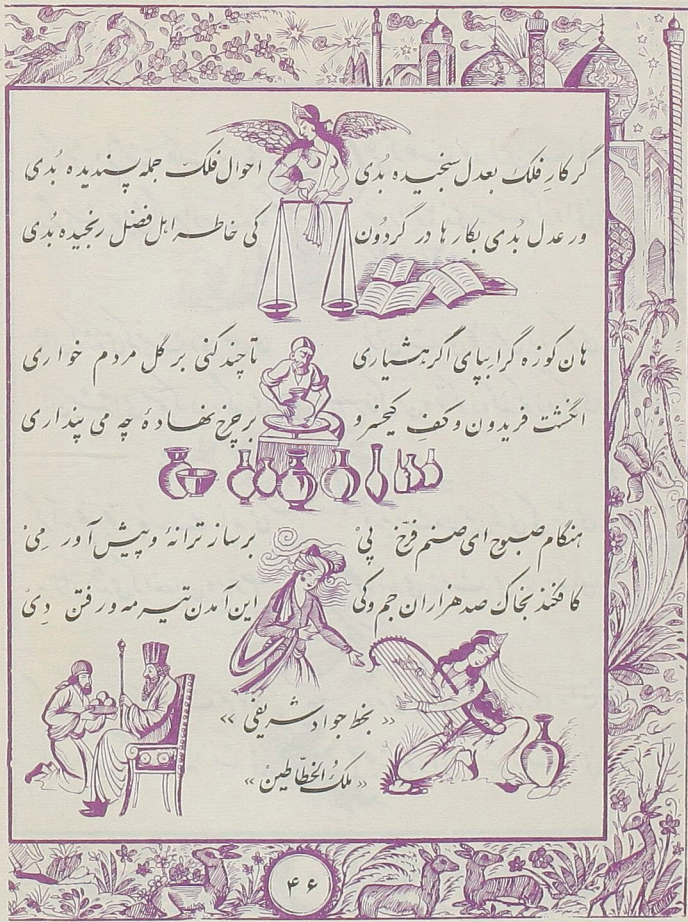 گر کارِ فلک بعدل سنجیده بُدی احوال فلک جمله پسندیده بُدی
ور عدل بُدی بکارها در گردون کی خاطر اهل فضل رنجیده بُدی
هان کوزه گرا بپای اگر هشیاری تا چند کنی بر گل مردم خواری
انگشت فریدون و کفِ کیخسرو بر چرخ نهادهٔ چه می پنداری
هنگام صبوح ای صنم فرّخ پیْ برساز ترانهٔ و پیش آور میْ
کافکند بخاک صد هزاران جم و کی این آمدن تیرمه و رفتن دیْ
«بخط جواد شریفی»
«ملک الخطّاطین»
۴۶